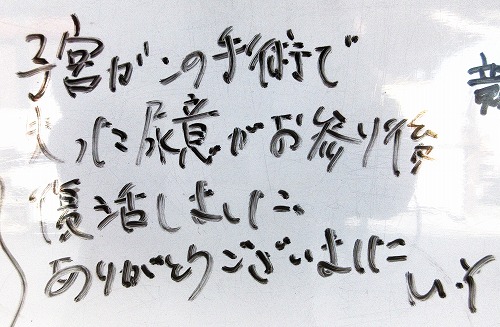 子宮がンの手術で
失った尿意がお参り後
復活しました。
ありがとうございました
M.Y